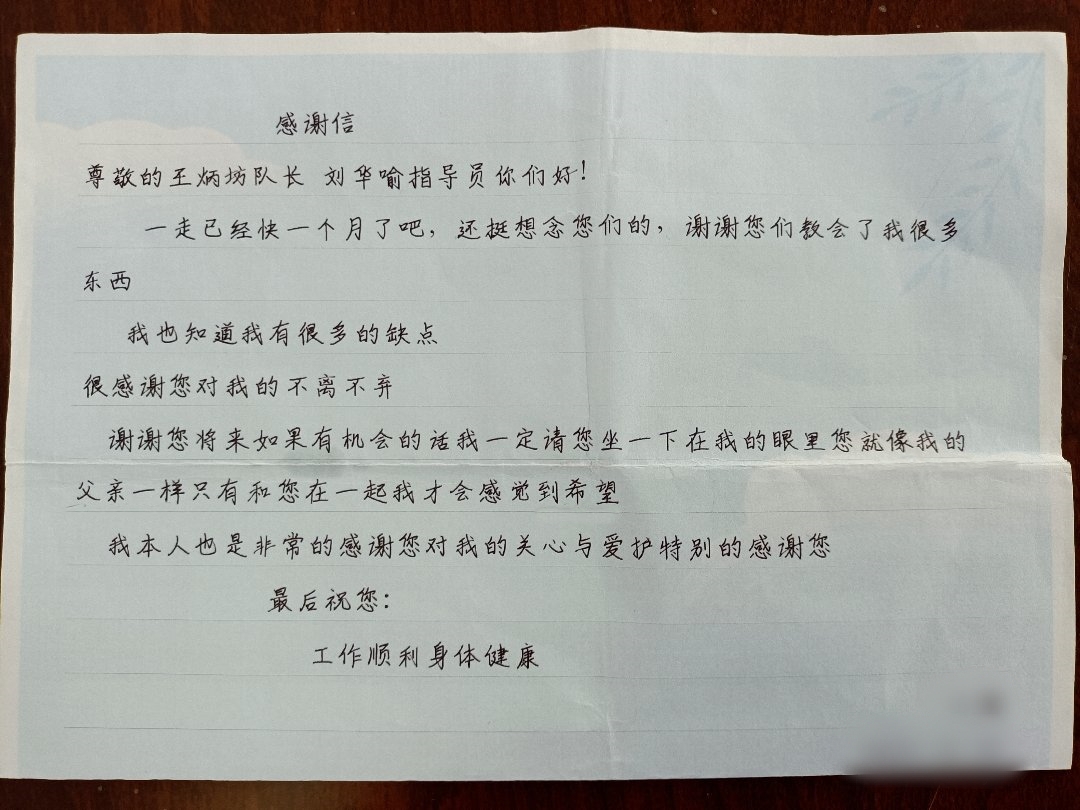 感谢信
尊敬的王炳坊队长 刘华喻指导员你们好!
一走已经快一个月了吧,还挺想念您们的,谢谢您们教会了我很多
东西
我也知道我有很多的缺点
很感谢您对我的不离不弃
谢谢您将来如果有机会的话我一定请您坐一下在我的眼里您就像我的
父亲一样只有和您在一起我才会感觉到希望
我本人也是非常的感谢您对我的关心与爱护特别的感谢您
最后祝您:
工作顺利身体健康